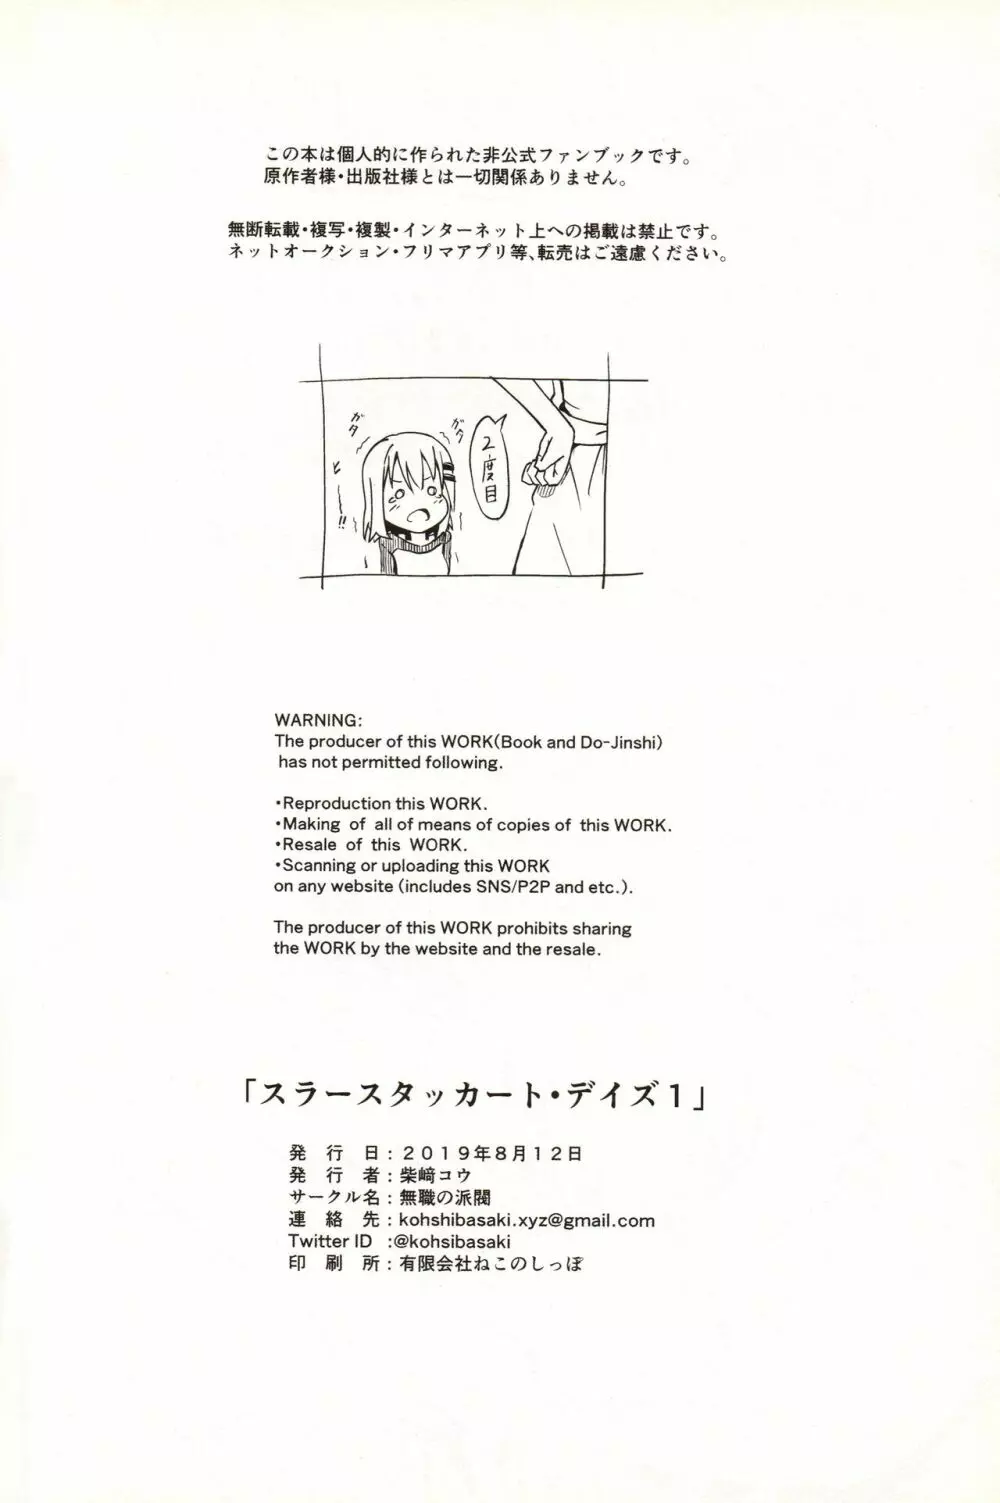 この本は個人的に作られた非公式ファンブックです。
原作者様・出版社様とは一切関係ありません。
無断転載・複写・複製・インターネット上への掲載は禁止です。
ネットオークション・フリマアプリ等、転売はご遠慮ください。
2度目
ガタ
ガタ
ヒ
!!
WARNING:
The producer of this WORK(Book and Do-Jinshi)
has not permitted following.
・Reproduction this WORK.
・Making of all of means of copies of this WORK.
・Resale of this WORK.
・Scanning or uploading this WORK
on any website (includes SNS/P2P and etc.).
The producer of this WORK prohibits sharing
the WORK by the website and the resale.
「スラースタッカート・デイズ1」
発行日:2019年8月12日
発行者:柴﨑コウ
サークル名:無職の派閥
連絡先:kohshibasaki.xyz@gmail.com
Twitter ID :@kohsibasaki
印刷所:有限会社ねこのしっぽ